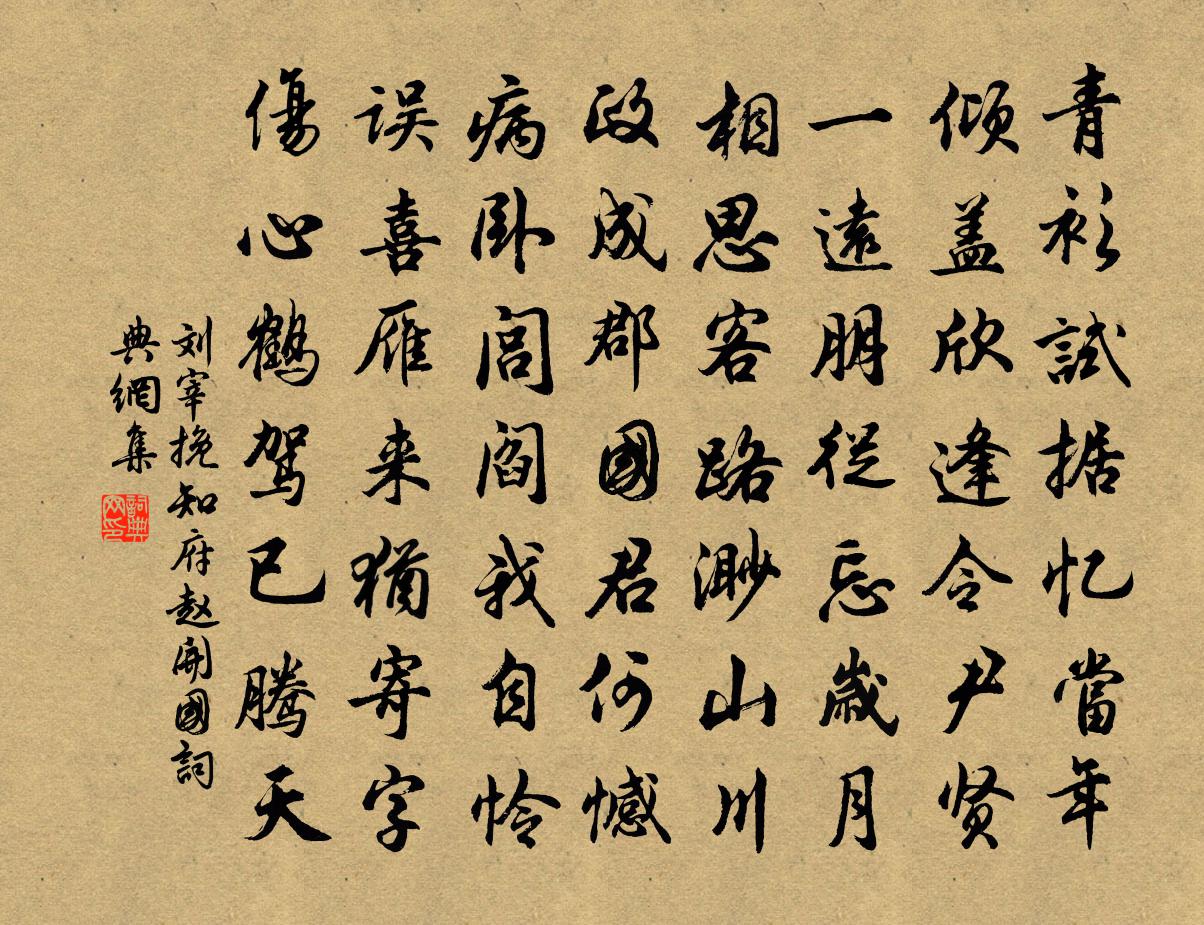 青衫試据忆當年
倾盖欣逢令尹贤
一遠朋從忘歲月
相思客路渺山川
政成郡國君何憾
病卧閭阎我自怜
误喜雁来猶寄字
傷心鶴驾已腾天
刘宰挽知府赵開國詞
典網集
詞典網印